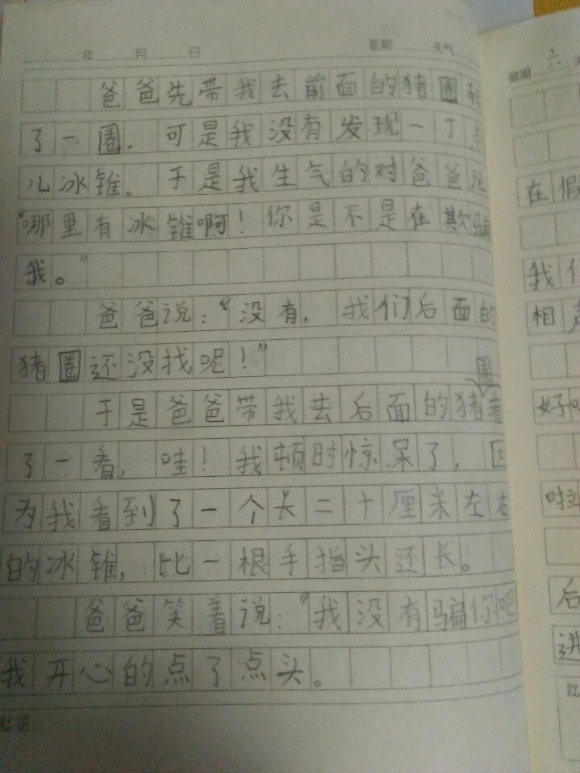 年 月 日 星期 天气
爸爸先带我去前面的猪圈转
了一圈，可是我没有发现一丁点
儿冰锥。于是我生气的对爸爸说
“哪里有冰锥啊！你是不是在欺骗
我。”
爸爸说：“没有，我们后面的
猪圈还没找呢！”
于是爸爸带我去后面的猪圈看
了一看，哇！我顿时惊呆了，因
为我看到了一个长二十厘米左右
的冰锥，比一根手指头还长。
爸爸笑着说：“我没有骗你吧
我开心的点了点头。
批语：
星期 六
在假
我们
相声
好
啦
后
进
批